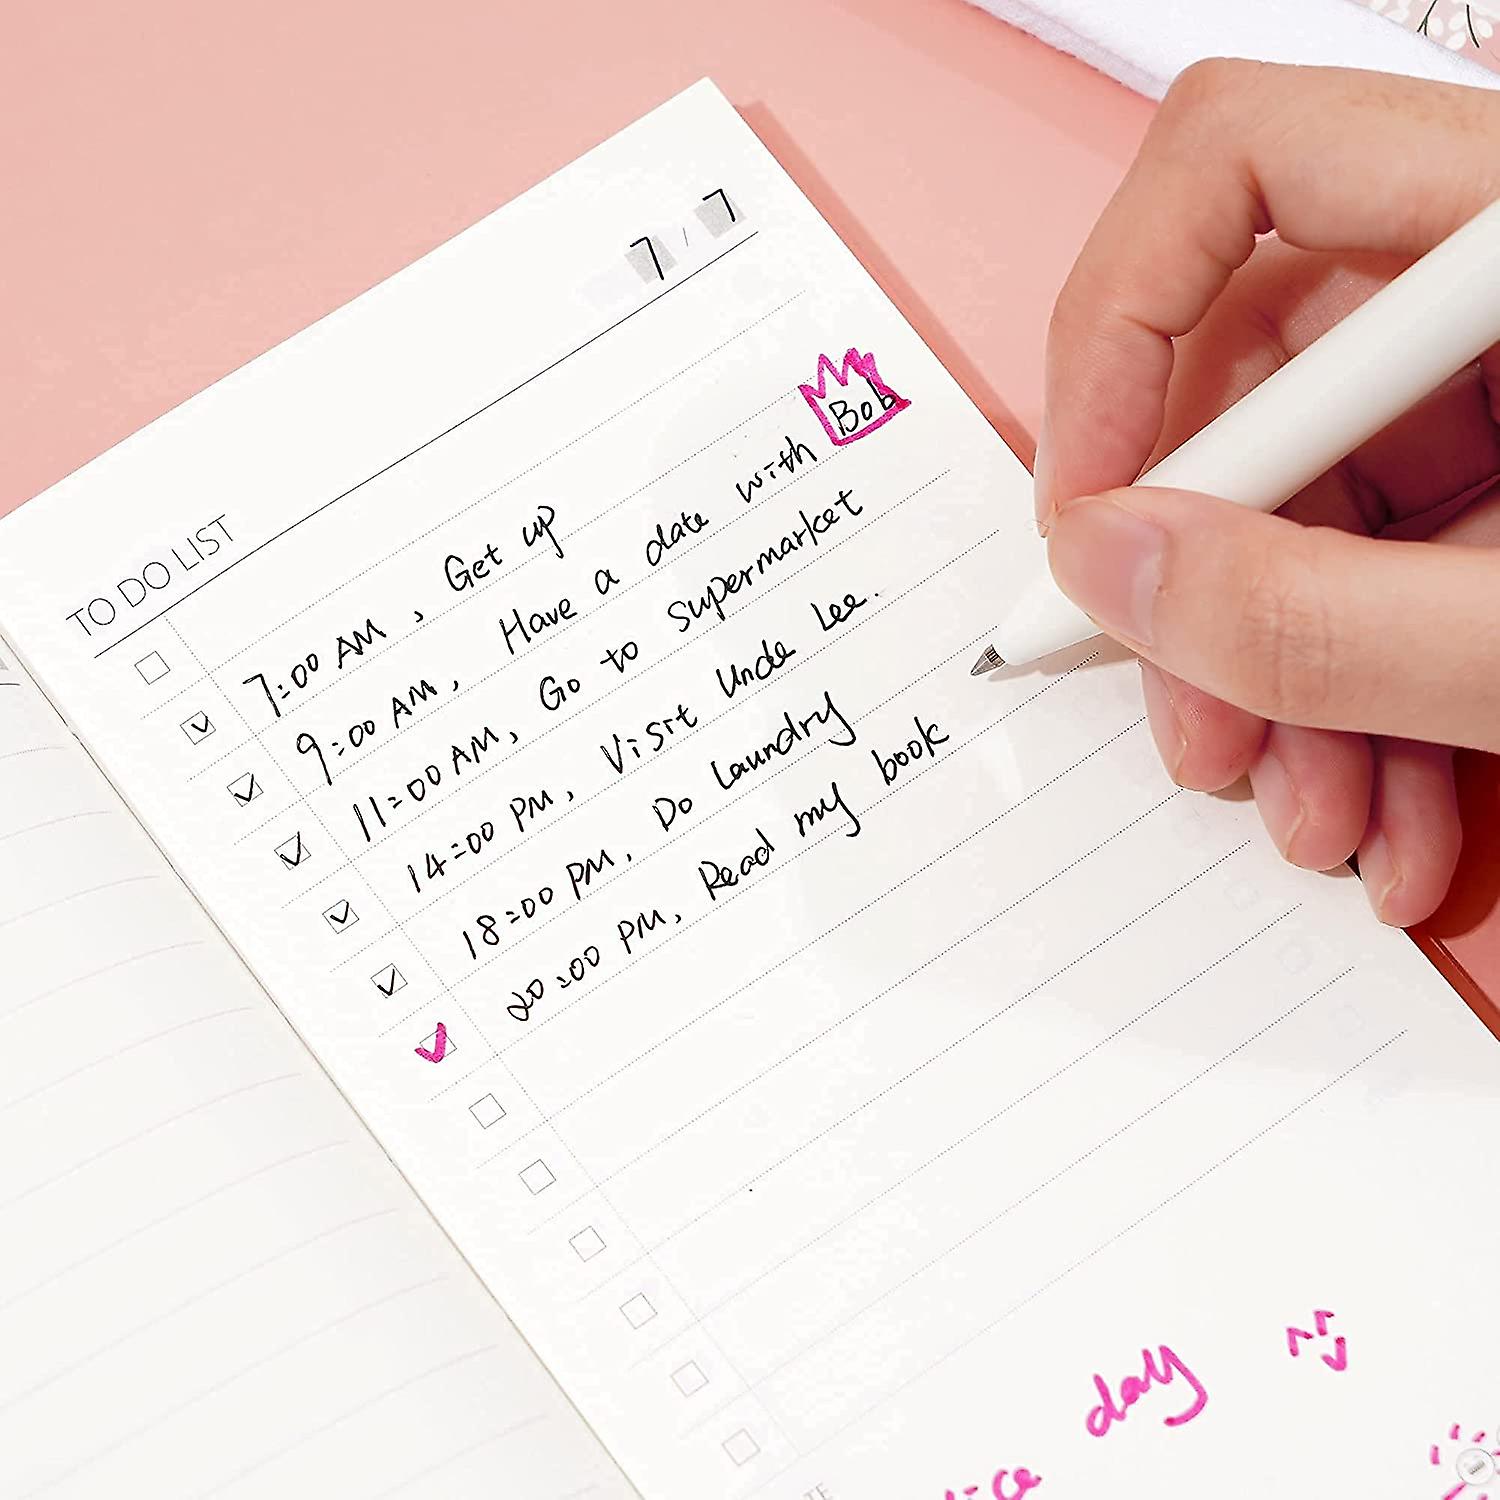 7/7
TO DO LIST
7:00 AM, Get up
9:00 AM, Have a date with Bob
11:00 AM, Go to supermarket
14:00 PM, Visit Uncle Lee.
18:00 PM, Do laundry
20:00 PM, Read my book
day